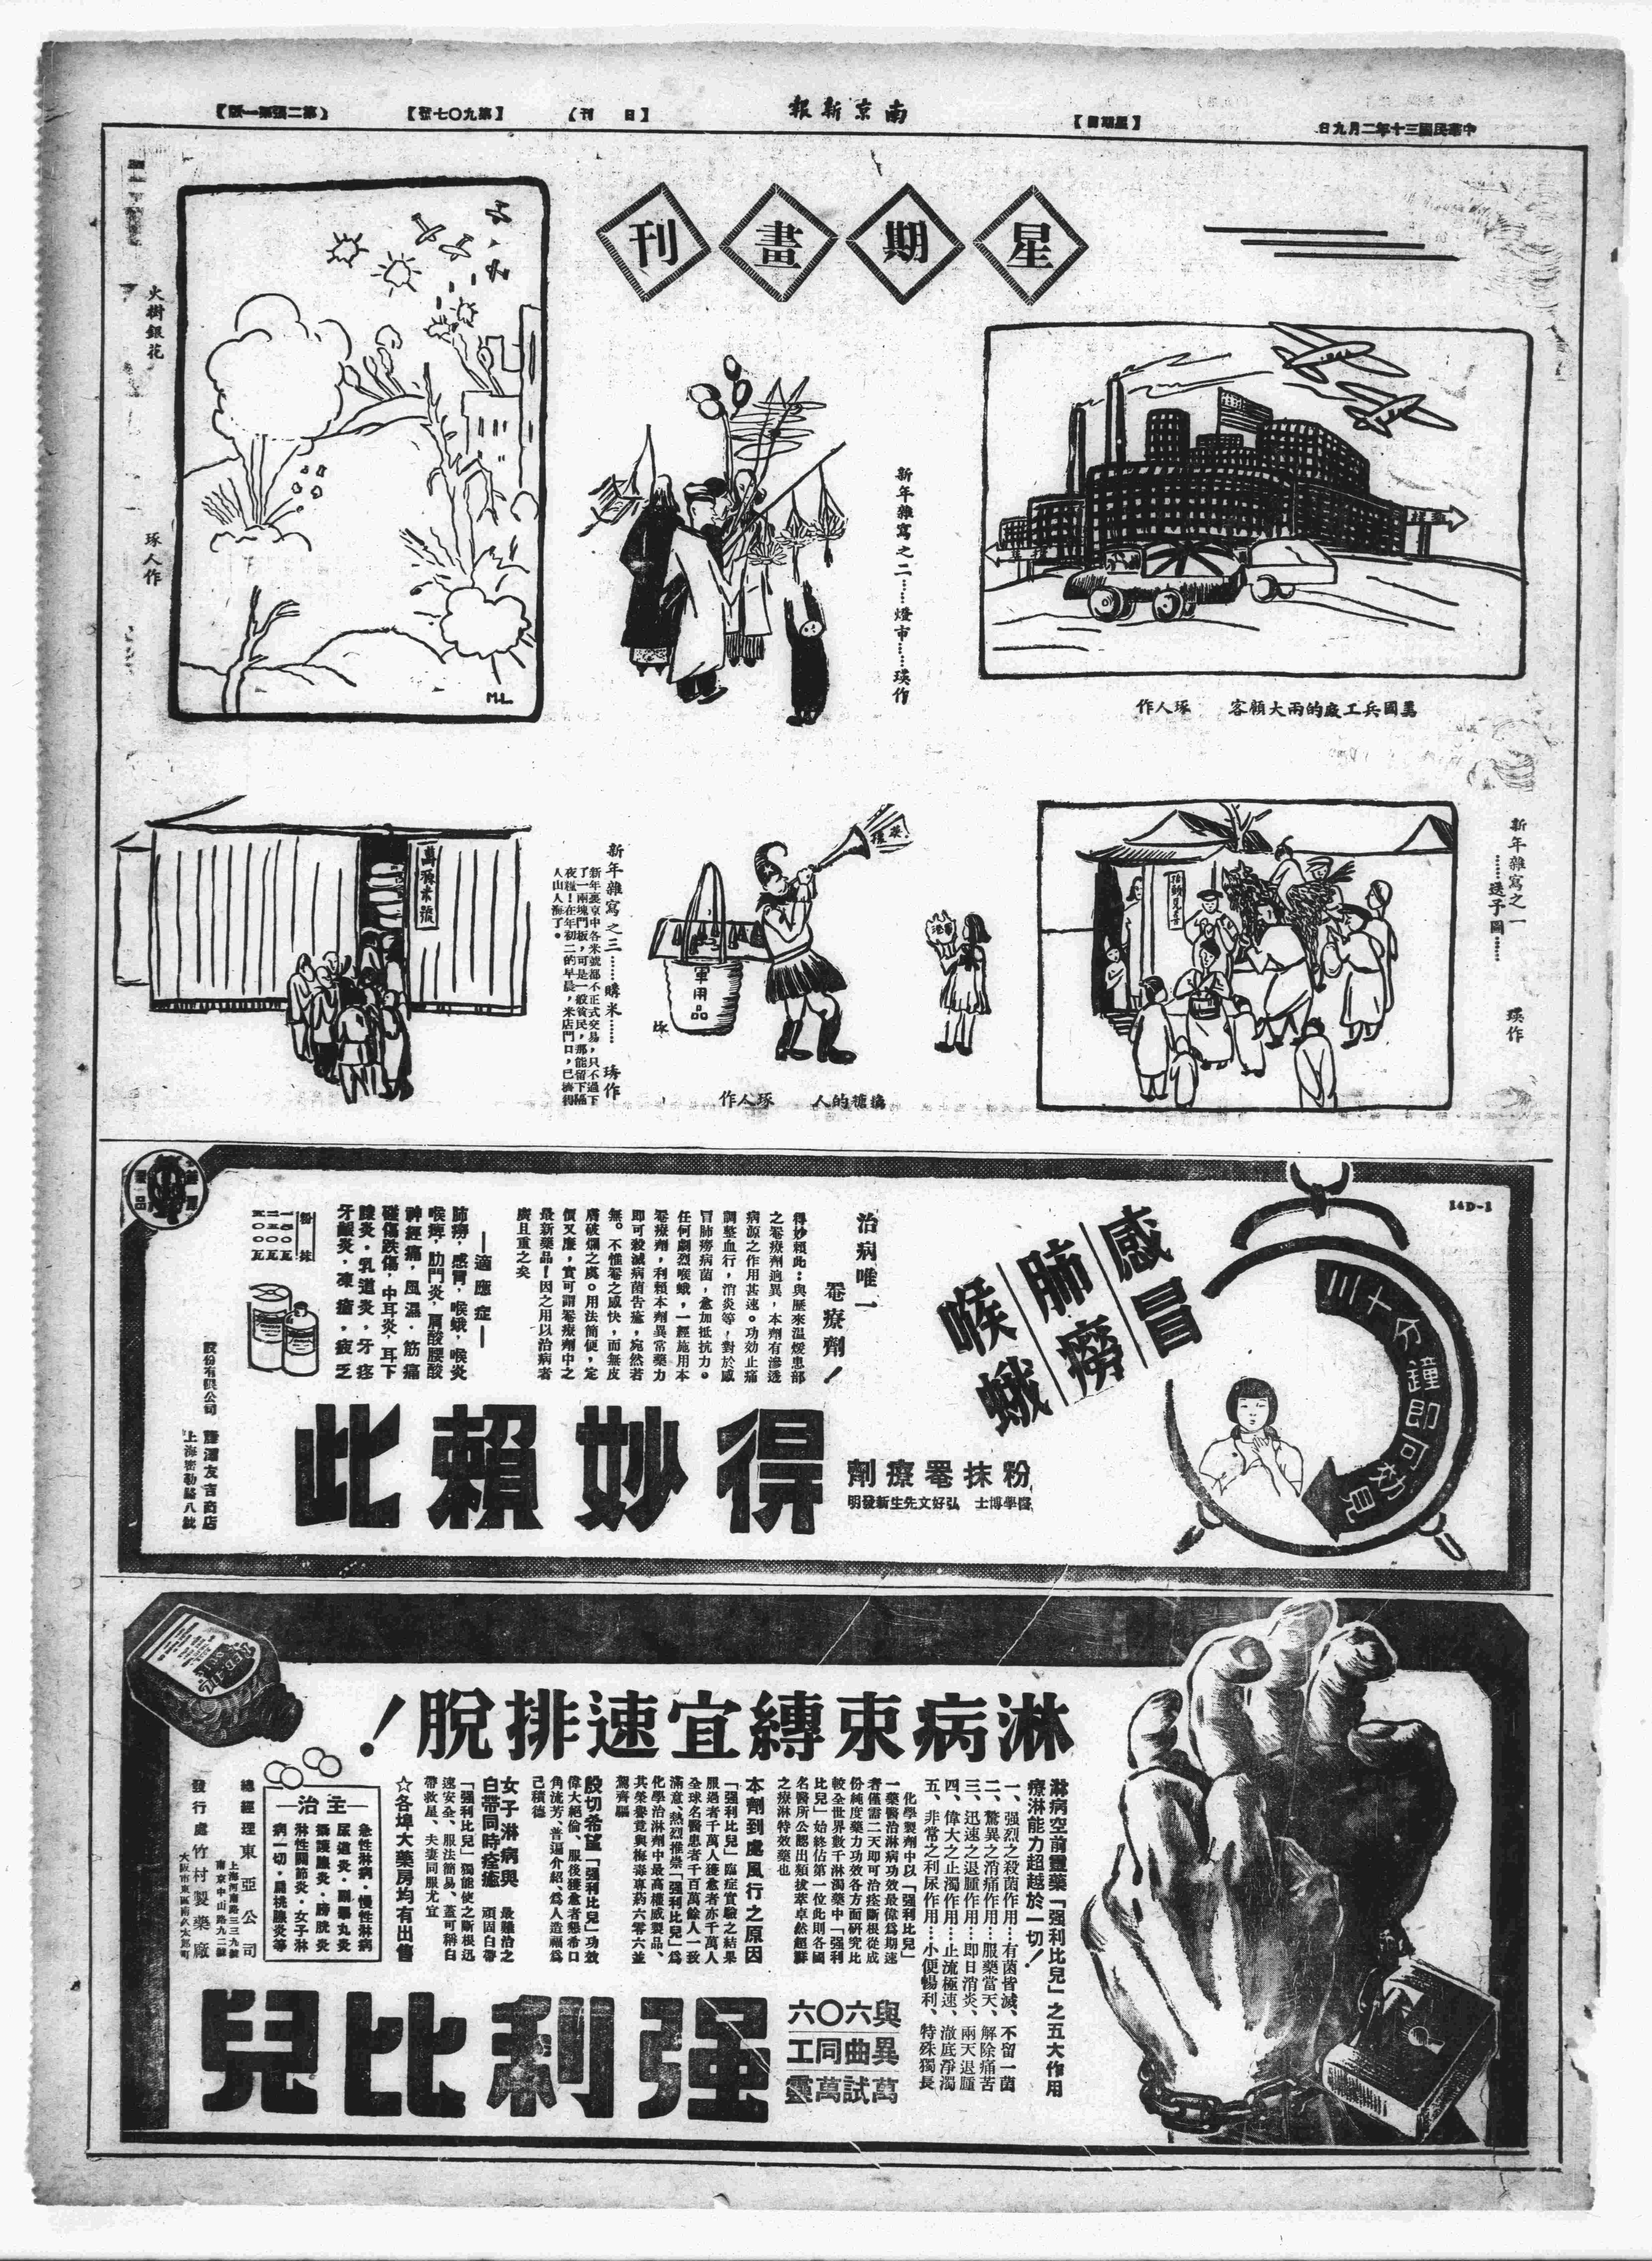 中華民國三十年二月九日
【星期日】
南京新報
【日刊】
【第九〇七號】
(第二張第一版)
星期畫刊
美國兵工廠的兩大顧客 琢人作
新年雜寫之二……燈市……瑛作
火樹銀花
琢人作
M.L
新年雜寫之一
……送子圖……
瑛作
軍用品
琢
換糖的人 琢人作
新年雜寫之三……購米……琦作
新年裏京中各米號都不正式交易,只不過下
了一兩塊門板,可是一般貧民,那能留下隔
夜糧!在年初二的早晨,米店門口,已擠得
人山人海了。
萬源米號
14D-1
三十分鐘即可効見
感冒
肺癆
喉蛾
治病唯一
罨療劑!
粉抹罨療劑
醫學博士 弘好文先生新發明
得妙賴此
得妙賴此:與歷來溫煖患部
之罨療劑逈異,本劑有滲透
病源之作用甚速。功効止痛
調整血行,消炎等,對於感
冒肺癆病菌,愈加抵抗力。
任何劇烈喉蛾,一經施用本
罨療劑,利賴本劑異常藥力
即可殺滅病菌告瘥,宛然若
無。不惟罨之感快,而無皮
膚破爛之虞。用法簡便,定
價又廉,實可謂罨療劑中之
最新藥品!因之用以治病者
廣且重之矣
—適應症—
肺癆,感冒,喉蛾,喉炎
喉痺,肋門炎,肩酸腰酸
神經痛,風濕,筋痛
碰傷跌傷,中耳炎,耳下
腺炎,乳道炎,牙疼
牙齦炎,凍瘡,疲乏
粉抹
股份有限公司 藤澤友吉商店
上海密勒路八號
淋病束縛宜速排脫!
淋病空前靈藥「强利比兒」之五大作用
療淋能力超越於一切!
一、强烈之殺菌作用…有菌皆滅、不留一菌
二、驚異之消痛作用…服藥當天、解除痛苦
三、迅速之退腫作用…即日消炎、兩天退腫
四、偉大之止濁作用…止流極速、澈底淨濁
五、非常之利尿作用…小便暢利、特殊獨長
化學製劑中以「强利比兒」
一藥醫治淋病功效最偉爲期速
者僅需二天即可治痊斷根從成
份純度藥力功效各方面研究比
較全世界數千淋濁藥中「强利
比兒」始終佔第一位此則各國
名醫所公認出類拔萃卓然超群
之療淋特效藥也
本劑到處風行之原因
「强利比兒」臨症實驗之結果
服過者千萬人獲愈者亦千萬人
全球名醫患者千百萬餘人一致
滿意、熱烈推崇「强利比兒」爲
化學治淋劑中最高權威製品、
其榮譽竟與梅毒專葯六零六並
駕齊驅
殷切希望「强利比兒」功效
偉大絕倫、服後獲愈者懇希口
角流芳、普遍介紹、爲人造福爲
己積德
女子淋病與
白帶同時痊癒
最難治之
頑固白帶
「强利比兒」獨能使之斷根迅
速安全、服法簡易、蓋可稱白
帶救星、夫妻同服尤宜
☆各埠大藥房均有出售
與六〇六
異曲同工
萬試萬靈
强利比兒
—主治—
急性淋病.慢性淋病
尿道炎.副睾丸炎
攝護腺炎.膀胱炎
淋性關節炎.女子淋
病一切.扁桃腺炎等
總經理 東亞公司
上海河南路三三九號
南京中山路九二號
發行處 竹村製藥廠
大阪市東區南久太郎町